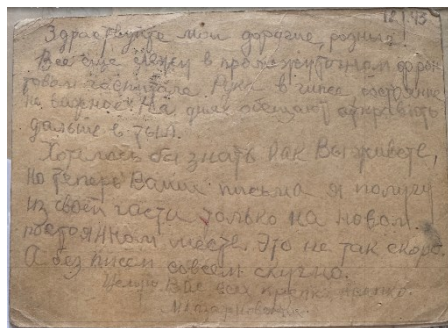 12 I 43
Здравствуйте мои дорогие, родные!
Все еще лежу в промежуточном фрон
товом госпитале. Рука в гипсе состояние
не важное. На днях обещают отправить
дальше в тыл.
Хотелось бы знать как Вы живете,
но теперь Ваши письма я получу
из своей части только на новом
постоянном месте. Это не так скоро.
А без писем совсем скучно.
Целую Вас всех крепко